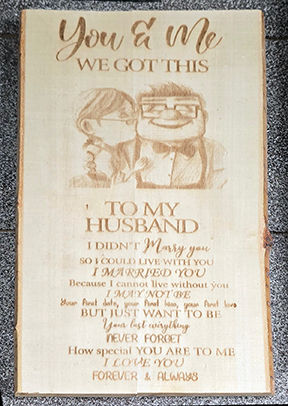 You & Me
WE GOT THIS
TO MY
HUSBAND
I DIDN'T Marry you
SO I COULD LIVE WITH YOU
I MARRIED YOU
Because I cannot live without you
I MAY NOT BE
Your first date, your first kiss, your first love
BUT JUST WANT TO BE
Your last everything
NEVER FORGET
How special YOU ARE TO ME
I LOVE YOU
FOREVER & ALWAYS